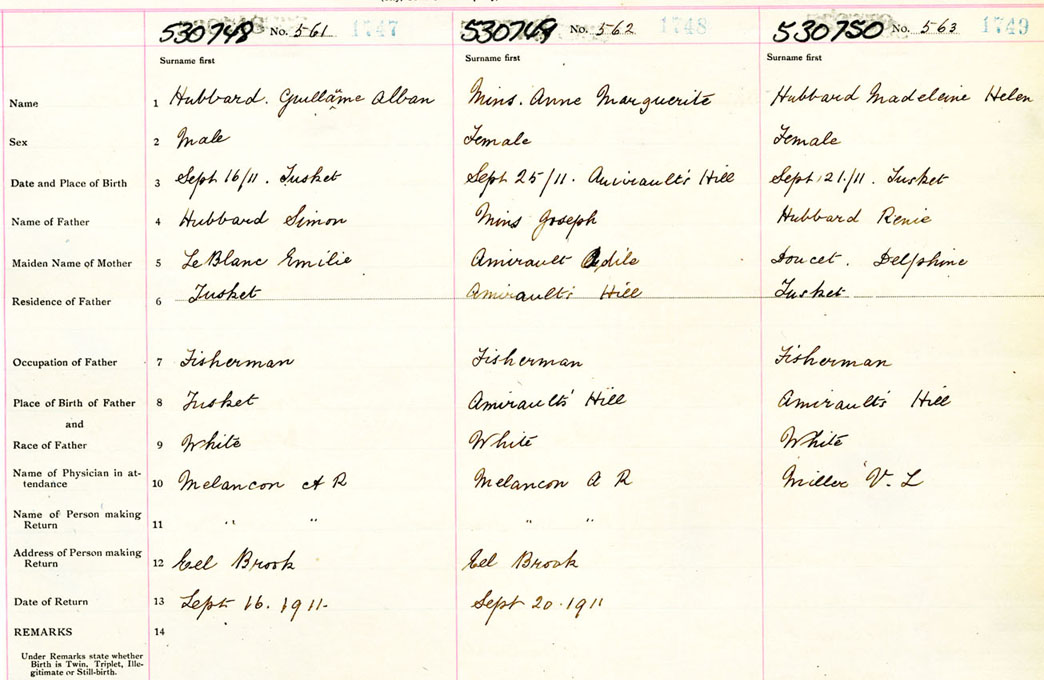 530748 No. 561 1747 530749 No. 562 1748 530750 No. 563 1749
Surname first Surname first Surname first
Name 1 Hubbard. Guillâme Alban Mins. Anne Marguerite Hubbard Madeleine Helen
Sex 2 Male Female Female
Date and Place of Birth 3 Sept 16/11. Tusket Sept 25/11. Amirault's Hill Sept 21/11. Tusket
Name of Father 4 Hubbard Simon Mins Joseph Hubbard Renie
Maiden Name of Mother 5 LeBlanc Emilie Amirault Odile Doucet. Delphine
Residence of Father 6 Tusket Amirault's Hill Tusket
Occupation of Father 7 Fisherman Fisherman Fisherman
Place of Birth of Father 8 Tusket Amirault's Hill Amirault's Hill
and
Race of Father 9 White White White
Name of Physician in at-
tendance 10 Melancon A R Melancon A R Miller V. L
Name of Person making
Return 11 " " " "
Address of Person making
Return 12 Eel Brook Eel Brook
Date of Return 13 Sept 16. 1911. Sept 20. 1911
REMARKS 14
Under Remarks state whether
Birth is Twin, Triplet, Ille-
gitimate or Still-birth.